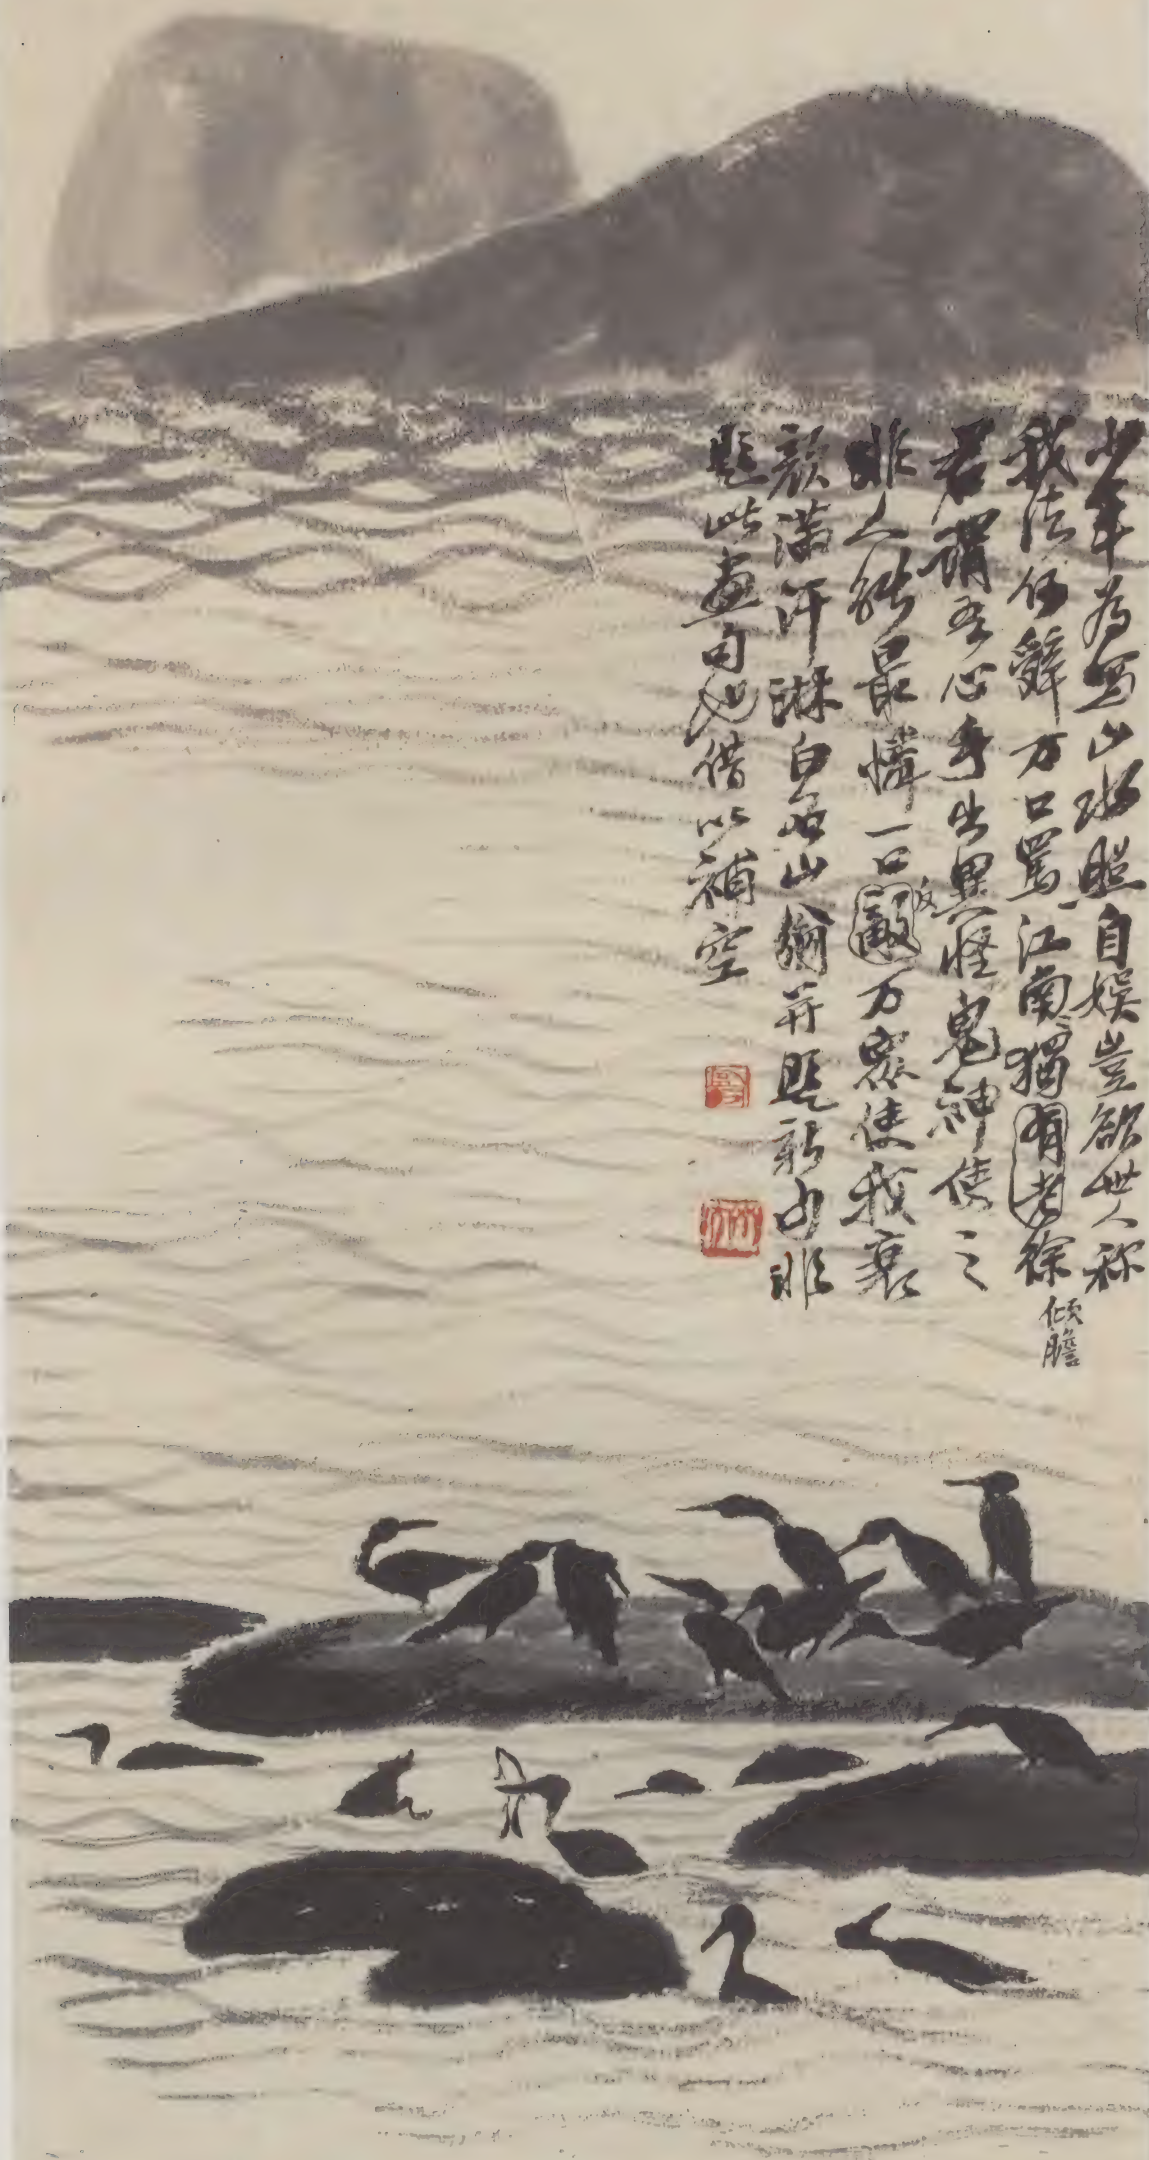 少年為寫山水照自娛豈欲世人称
我法何辭万口罵江南獨有老徐
傾膽
君謂吾心手出異怪鬼神使之
非人能最憐一口敵万眾使我衰
反
顏滿汗淋白石山翁并題新句非
題此畫句也借以補空